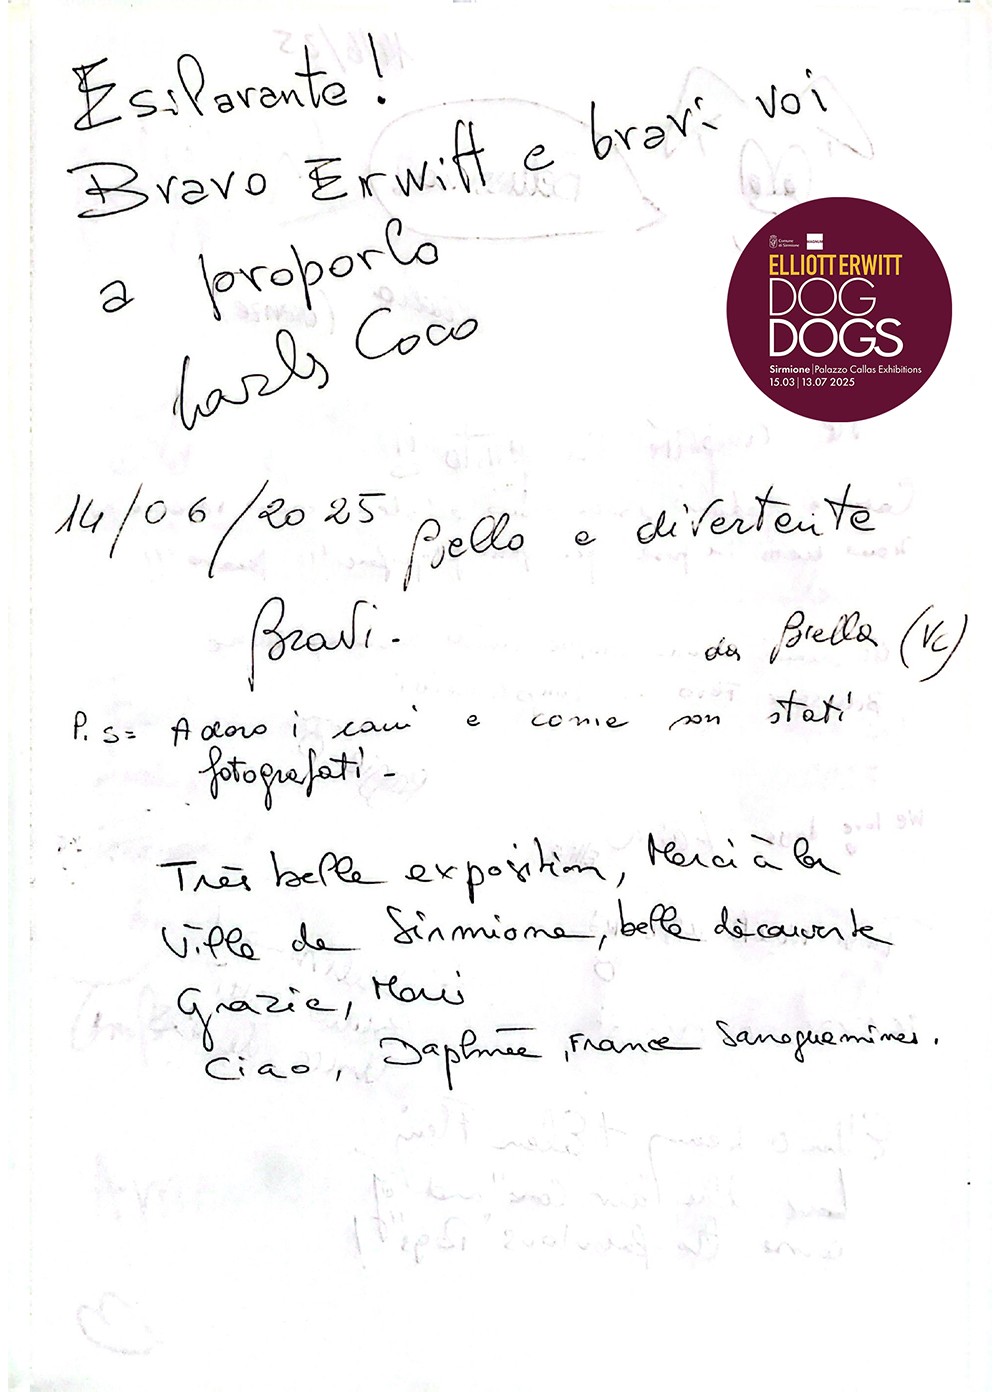 Esilarante!
Bravo Erwitt e bravi voi
a proporlo
Coco
Comune
di Sirmione
MAGNUM
ELLIOTT ERWITT
DOG
DOGS
Sirmione | Palazzo Callas Exhibitions
15.03 | 13.07 2025
14/06/2025 Bello e divertente
Bravi.
da Biella (VC)
P.S= Adoro i cani e come son stati
fotografati-
Très belle exposition, Merci à la
Ville de Sirmione, belle découverte
Grazie, Merci
Ciao, Daphnée, France Sarreguemines.